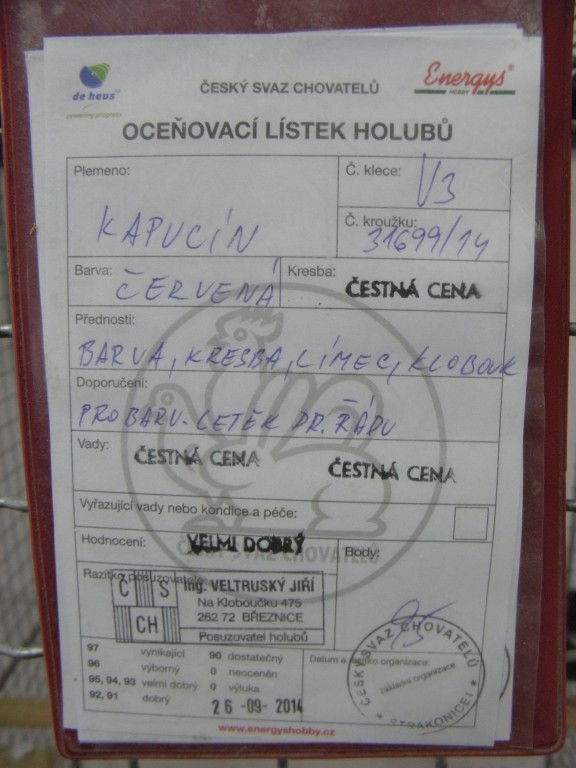 de heus
powering progress
ČESKÝ SVAZ CHOVATELŮ
Energys
HOBBY
OCEŇOVACÍ LÍSTEK HOLUBŮ
Plemeno:
KAPUCÍN
Č. klece:
V3
Č. kroužku:
31699/14
Barva: ČERVENÁ
Kresba:
ČESTNÁ CENA
Přednosti:
BARVA, KRESBA, LÍMEC, KLOBOUK
Doporučení:
PROBARV. LETEK DR. ŘÁDU
Vady:
ČESTNÁ CENA ČESTNÁ CENA
Vyřazující vady nebo kondice a péče:
Hodnocení: VELMI DOBRÝ
Body:
95
ČESKÝ SVAZ CHOVATELŮ
Razítko posuzovatele:
Č S
CH
Ing. VELTRUSKÝ JIŘÍ
Na Kloboučku 475
262 72 BŘEZNICE
Posuzovatel holubů
97 vynikající 90 dostatečný
96 výborný 0 neoceněn
95, 94, 93 velmi dobrý 0 výluka
92, 91 dobrý
26 -09- 2014
Datum a razítko organizace:
ČESKÝ SVAZ CHOVATELŮ
základní organizace
www.energyshobby.cz